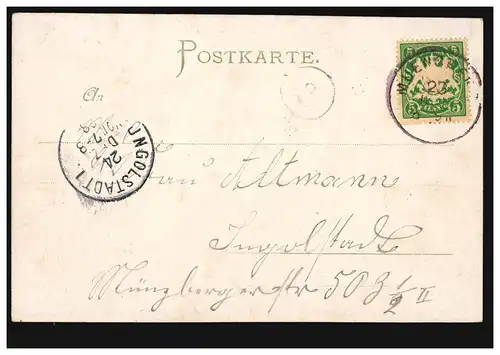 POSTKARTE.
An
5 5
5 5
23
INGOLSTADT 1.
24
DEZ
Frau Altmann
Ingolstadt
Münzbergerstr 503 1/2 II